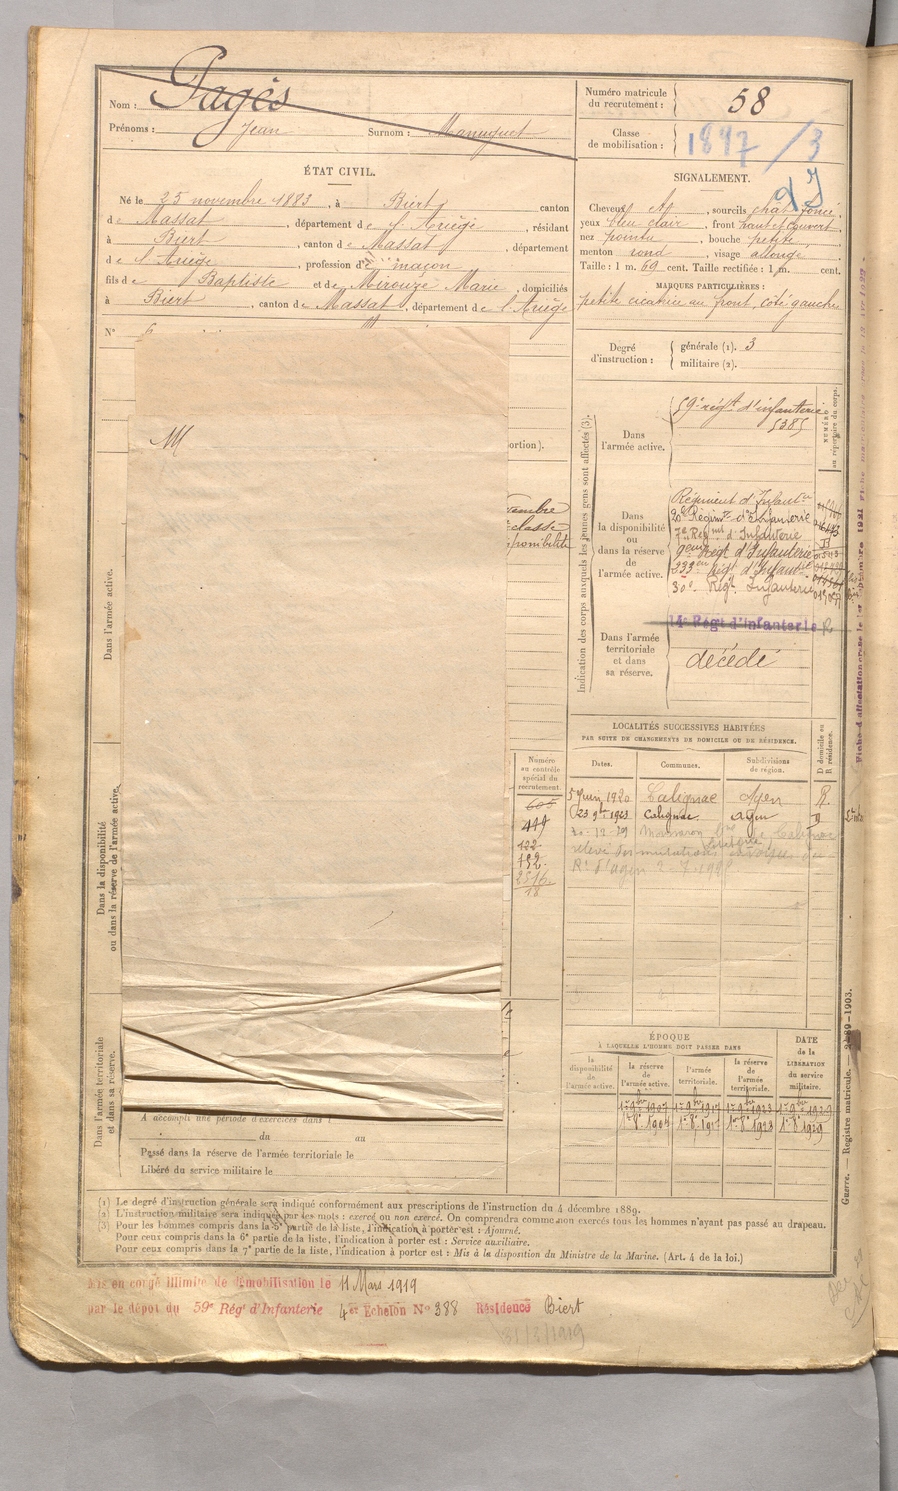 Nom : Pagès
Prénoms : Jean Surnom :
ÉTAT CIVIL.
Né le 25 novembre 1883, à Biert, canton
de Massat, département de l'Ariège, résidant
à Biert, canton de Massat, département
de l'Ariège, profession de maçon
fils de Baptiste et de Mirouze Marie, domiciliés
à Biert, canton de Massat, département de l'Ariège
N° 6
M
ortion).
vembre
classe
sponibilité
Dans l'armée active.
Dans la disponibilité
ou dans la réserve de l'armée active.
Dans l'armée territoriale
et dans sa réserve.
A accompli une période d'exercices dans l
du au
Passé dans la réserve de l'armée territoriale le
Libéré du service militaire le
Numéro
au contrôle
spécial du
recrutement.
605
449
122
Numéro matricule
du recrutement : 58
Classe
de mobilisation : 1897 / 3
SIGNALEMENT.
Cheveux, sourcils chât foncé,
yeux bleu clair, front haut et couvert,
nez pointu, bouche petite,
menton rond, visage allongé
Taille : 1 m. 69 cent. Taille rectifiée : 1 m. cent.
MARQUES PARTICULIÈRES :
petite cicatrice au front, côté gauche
Degré
d'instruction :
générale (1). 3
militaire (2).
Indication des corps auxquels les jeunes gens sont affectés (3).
NUMÉRO
au répertoire du corps.
Dans
l'armée active.
59e régt d'infanterie
5385
Dans
la disponibilité
ou
dans la réserve
de
l'armée active.
Régiment d'Infant
20e Régimt d'Infanterie
7e Regmt d'Infanterie
9eme Régt d'Infanterie
Régt d'Infant
30e Régt Infanterie
14e Régt d'Infanterie R
Dans l'armée
territoriale
et dans
sa réserve.
décédé
LOCALITÉS SUCCESSIVES HABITÉES
PAR SUITE DE CHANGEMENTS DE DOMICILE OU DE RÉSIDENCE.
D domicile ou
R résidence.
Dates. Communes. Subdivisions
de région.
5 Juin 1920 Calignac Agen R.
23 9bre 1923 Calignac Agen D
ÉPOQUE
À LAQUELLE L'HOMME DOIT PASSER DANS
DATE
de la
LIBÉRATION
du service
militaire.
la
disponibilité
de
l'armée active.
la réserve
de
l'armée active.
l'armée
territoriale.
la réserve
de
l'armée
territoriale.
1er 9bre 1907 1er 9bre 1917 1er 9bre 1923 1er 9bre 1929
Guerre. — Registre matricule. — 1903.
(1) Le degré d'instruction générale sera indiqué conformément aux prescriptions de l'instruction du 4 décembre 1889.
(2) L'instruction militaire sera indiquée par les mots : exercé ou non exercé. On comprendra comme non exercés tous les hommes n'ayant pas passé au drapeau.
(3) Pour les hommes compris dans la 5e partie de la liste, l'indication à porter est : Ajourné.
Pour ceux compris dans la 6e partie de la liste, l'indication à porter est : Service auxiliaire.
Pour ceux compris dans la 7e partie de la liste, l'indication à porter est : Mis à la disposition du Ministre de la Marine. (Art. 4 de la loi.)
Mis en congé illimité de démobilisation le 11 Mars 1919
par le dépôt du 59e Régt d'Infanterie 4e Echelon N° 388 Résidence Biert
31/3/1919